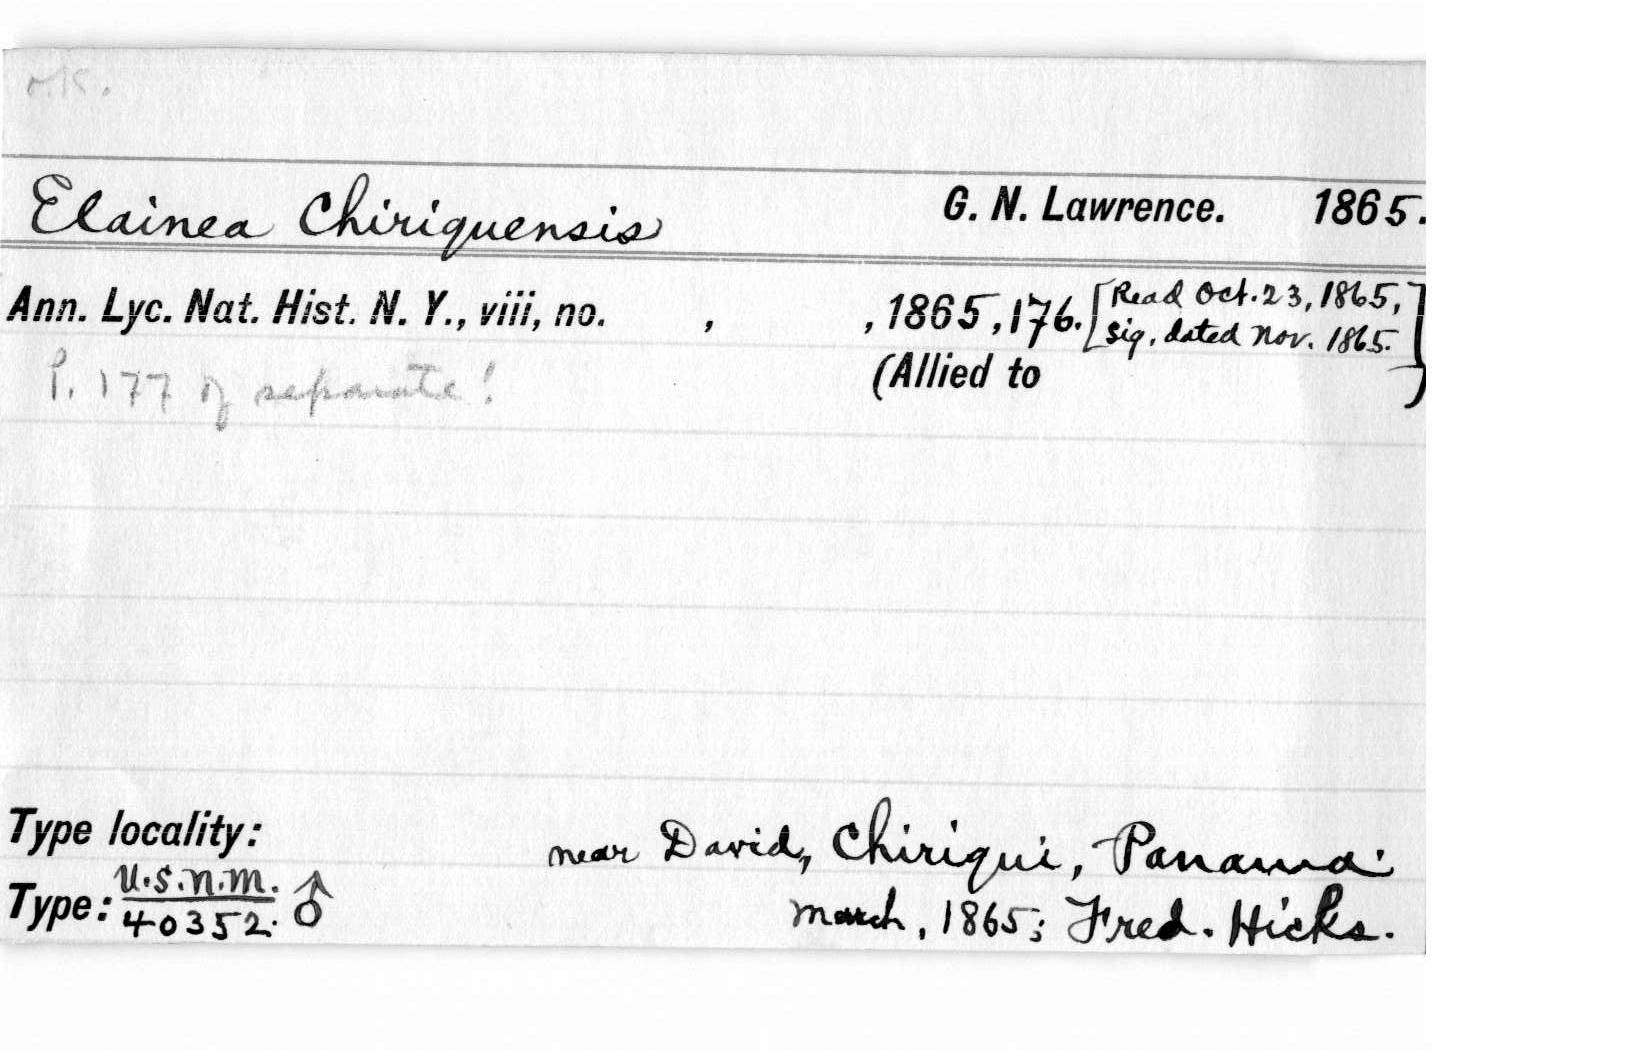 o.K.
Elainea Chiriquensis G. N. Lawrence. 1865.
Ann. Lyc. Nat. Hist. N. Y., viii, no. , , 1865, 176. [Read Oct. 23, 1865,
Sig. dated Nov. 1865.]
P. 177 of separate! (Allied to )
Type locality: near David, Chiriqui, Panama.
Type: U.S.N.M. 40352. ♂ March, 1865; Fred. Hicks.